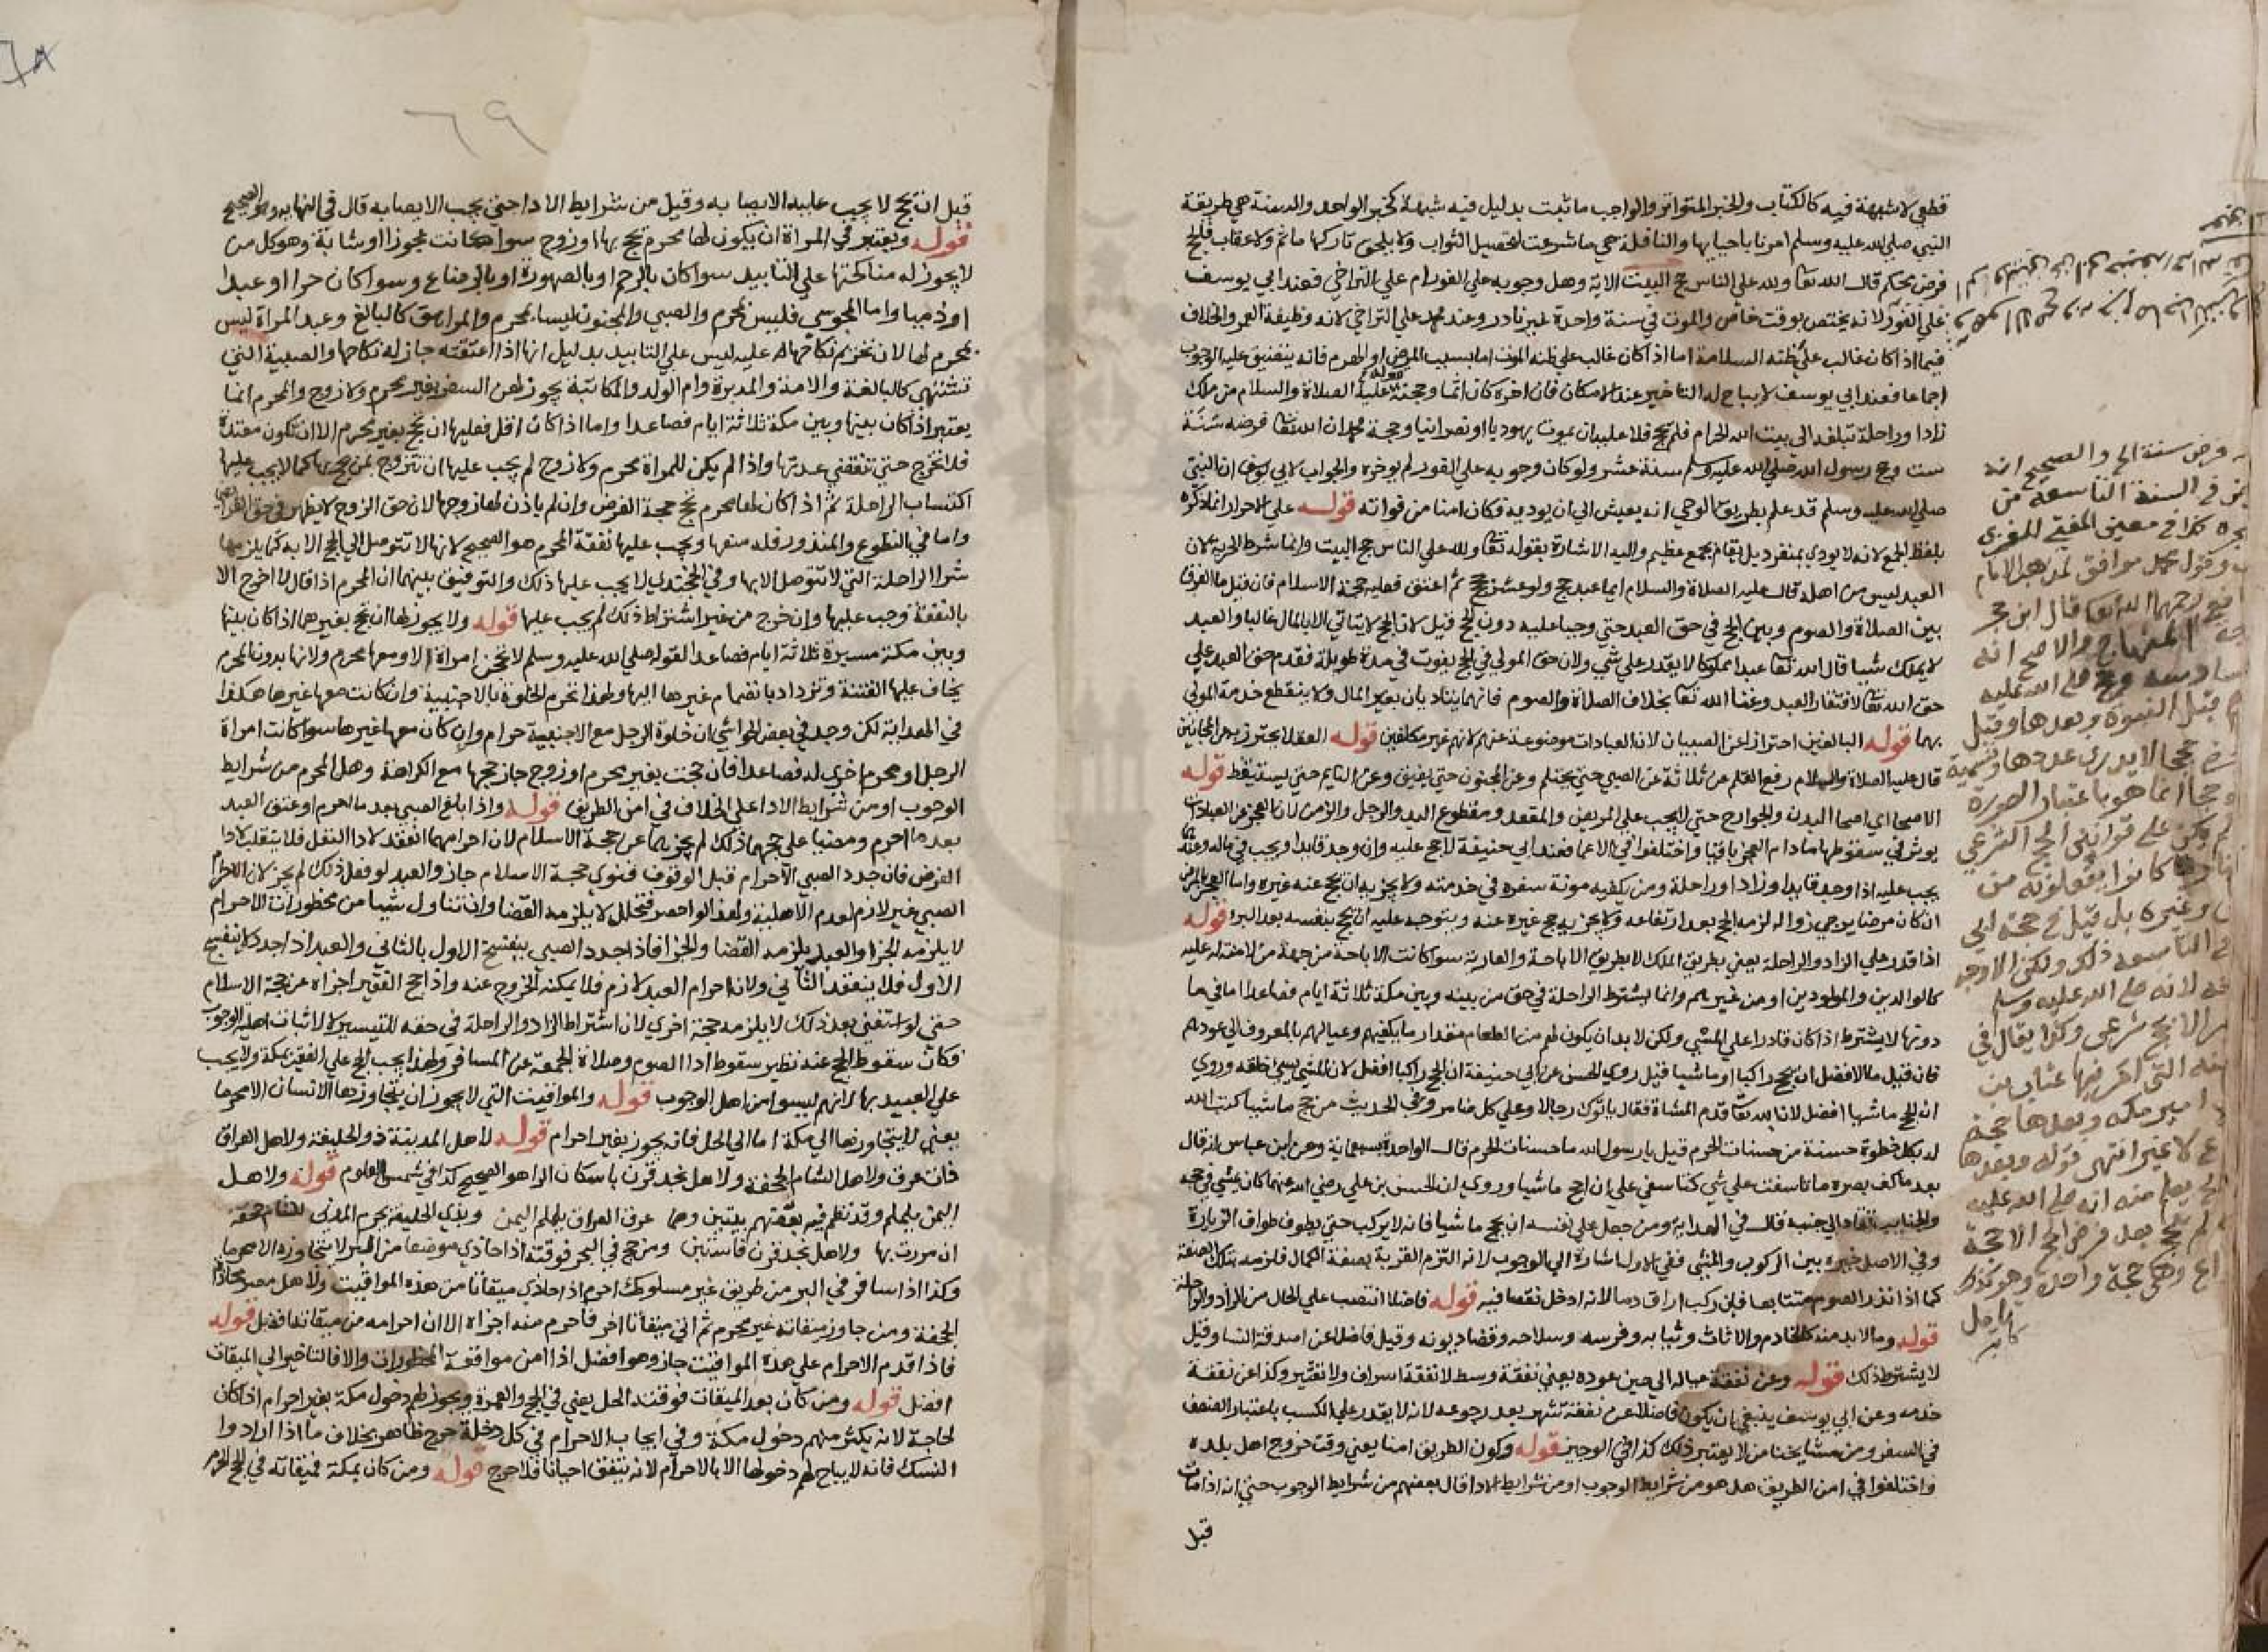 قطعي لا شبهة فيه كالكتاب والخبر المتواتر والواجب ما ثبت بدليل فيه شبهة كخبر الواحد والسنة هي طريقة
النبي صلى الله عليه وسلم امرنا باحيايها والنافلة هي ما شرعت لتحصيل الثواب ولا يلحق تاركها ماثم ولا عقاب فالحج
فرض محكم قال الله تعا ولله علي الناس حج البيت الاية وهل وجوبه علي الفور ام علي التراخي فعند ابي يوسف
علي الفور لانه يختص بوقت خاص والموت في سنة واحدة غير نادر وعند محمد علي التراخي لانه وظيفة العمر والخلاف
فيما اذا كان غالب علي ظنه السلامة اما اذا كان غالب علي ظنه الموت اما بسبب المرض او الهرم فانه يتضيق عليه الوجوب
اجماعا فعند ابي يوسف لا يباح له التاخير عند الامكان فان اخره كان اثما وحجته قوله عليه الصلاة والسلام من ملك
زادا وراحلة تبلغه الي بيت الله الحرام فلم يحج فلا عليه ان يموت يهوديا او نصرانيا وحجة محمد ان الله تعا فرضه سنة
ست وحج رسول الله صلي الله عليه وسلم سنة عشر ولو كان وجوبه علي الفور لم يوخره والجواب لابي يوسف ان النبي
صلي الله عليه وسلم قد علم بطريق الوحي انه يعيش الي ان يوديه فكان امنا من فواته قوله علي الاحرار انما ذكره
بلفظ الجمع لانه لا يودي بمنفرد بل يقام بجمع عظيم واليه الاشارة بقوله تعا ولله علي الناس حج البيت وانما شرط الحرية لان
العبد ليس من اهله قال عليه الصلاة والسلام ايما عبد حج ولو عشر حجج ثم اعتق فعليه حجة الاسلام فان قيل ما الفرق
بين الصلاة والصوم وبين الحج في حق العبد حتي وجبا عليه دون الحج قيل لان الحج لا يتاتي الا بالمال غالبا والعبد
لا يملك شيا قال الله تعا عبدا مملوكا لا يقدر علي شي ولان حق المولي في الحج يفوت في مدة طويلة فقدم حق العبد علي
حق الله تعا لافتقار العبد وغنا الله تعا بخلاف الصلاة والصوم فانهما يتاديان بغير المال ولا ينقطع خدمة المولي
بهما قوله البالغين احترازا عن الصبيان لان العبادات موضوعة عنهم لانهم غير مكلفين قوله العقلا يحترز به عن المجانين
قال عليه الصلاة والسلام رفع القلم عن ثلاثة عن الصبي حتي يحتلم وعن المجنون حتي يفيق وعن النايم حتي يستيقظ قوله
الاصحا اي اصحا البدن والجوارح حتي لا يجب علي المريض والمقعد ومقطوع اليد والرجل والزمن لان العجز عن العبادات
يوثر في سقوطها ما دام العجز باقيا واختلفوا في الاعما فعند ابي حنيفة لا حج عليه وان وجد قايدا ويجب في ماله وعندهما
يجب عليه اذا وجد قايدا وزادا وراحلة ومن يكفيه مونة سفره في خدمته ولا يجزيه ان يحج عنه غيره واما العجز بالمرض
ان كان مرضا يرجي زواله لزمه الحج بعد ارتفاعه ولا يجزيه حج غيره عنه ويتوجه عليه ان يحج بنفسه بعد البرء قوله
اذا قدر علي الزاد والراحلة يعني بطريق الملك لا بطريق الاباحة والعارية سوا كانت الاباحة من جهة من لا منة له عليه
كالوالدين والمولودين او من غيرهم وانما يشترط الراحلة في حق من بينه وبين مكة ثلاثة ايام فصاعدا اما في ما
دونها لا يشترط اذا كان قادرا علي المشي ولكن لا بد ان يكون لهم من الطعام مقدار ما يكفيهم وعيالهم بالمعروف الي عودهم
فان قيل ما الافضل ان يحج راكبا او ماشيا قيل روي الحسن عن ابي حنيفة ان الحج راكبا افضل لان المشي يسيئ خلقه وروي
ان الحج ماشيا افضل لان الله تعا قدم المشاة فقال ياتوك رجالا وعلي كل ضامر وفي الحديث من حج ماشيا كتب الله
له بكل خطوة حسنة من حسنات الحرم قيل يا رسول الله ما حسنات الحرم قال الواحدة بسبعماية وعن ابن عباس انه قال
بعد ما كف بصره ما تاسفت علي شي كتاسفي علي ان احج ماشيا وروي ان الحسن بن علي رضي الله عنهما كان يمشي في حجه
والجنايب تقاد الي جنبه قال في الهداية ومن جعل علي نفسه ان يحج ماشيا فانه لا يركب حتي يطوف طواف الزيارة
وفي الاصل خيره بين الركوب والمشي ففي الاول اشارة الي الوجوب لانه التزم القربة بصفة الكمال فلزمه بتلك الصفة
كما اذا نذر الصوم متتابعا فان ركب اراق دما لانه ادخل نقصا فيه قوله فاضلا انتصب علي الحال من الزاد والراحلة
قوله وما لا بد منه كالخادم والاثاث وثيابه وفرسه وسلاحه وقضا ديونه وقيل فاضلا عن اصدقة النسا وقيل
لا يشترط ذلك قوله وعن نفقة عياله الي حين عوده يعني نفقة وسط لا نفقة اسراف ولا تقتير وكذا عن نفقة
خدمه وعن ابي يوسف ينبغي ان يكون فاضلا عن نفقة شهر بعد رجوعه لانه لا يقدر علي الكسب باعتبار الضعف
في السفر ومن مشايخنا من لا يعتبر ذلك كذا في الوجيز قوله وكون الطريق امنا يعني وقت خروج اهل بلده
واختلفوا في امن الطريق هل هو من شرايط الوجوب او من شرايط الادا قال بعضهم من شرايط الوجوب حتي انه اذا مات
قبل
وفرض سنة الحج والصحيح انه
في السنة التاسعة من
كذا في معين المفتي للغزي
وقول محمد موافق لمذهب الامام
رحمهما الله تعا قال ابن حجر
المنهاج والاصح انه
سادسة وحج صلي الله عليه
قبل النبوة وبعدها وقيل
حججا لا يدري عددها وتسمية
حجا انما هو باعتبار الصورة
لم يكن علي قوانين الحج الشرعي
كانوا يفعلونه من
وغيره بل قيل في حجة ابي
في التاسعة ذلك ولكن الاوجه
لانه صلي الله عليه وسلم
الا بحج شرعي وكذا يقال في
التي امر فيها عتاب بن
امير مكة وبعدها حجة
لا غير انتهي قوله وبعدها
يعلم منه انه صلي الله عليه
لم يحج بعد فرض الحج الا حجة
وهي حجة واحدة
٦٩
قبل ان يحج لا يجب عليه الايصا به وقيل من شرايط الادا حتي يجب الايصا به قال في النهاية وهو الصحيح
قوله ويعتبر في المراة ان يكون لها محرم تحج بها او زوج سوا كانت عجوزا او شابة وهو كل من
لا يجوز له مناكحتها علي التابيد سوا كان بالرحم او بالصهورة او بالرضاع وسوا كان حرا او عبدا
او ذميا واما المجوسي فليس بمحرم والصبي والمجنون ليسا بمحرم والمراهق كالبالغ وعبد المراة ليس
بمحرم لها لان تحريم نكاحها عليه ليس علي التابيد بدليل انها اذا اعتقته جاز له نكاحها والصبية التي
تشتهي كالبالغة والامة والمدبرة وام الولد والمكاتبة يجوز لهن السفر بغير محرم ولا زوج والمحرم انما
يعتبر اذا كان بينها وبين مكة ثلاثة ايام فصاعدا واما اذا كان اقل فعليها ان تحج بغير محرم الا ان تكون معتدة
فلا تخرج حتي تنقضي عدتها واذا لم يكن للمراة محرم ولا زوج لم يجب عليها ان تتزوج بمن يحج بها كما لا يجب عليها
اكتساب الراحلة ثم اذا كان لها محرم تحج حجة الفرض وان لم ياذن لها زوجها لان حق الزوج لا يظهر في حق الفرايض
واما في التطوع والمنذور فله منعها ويجب عليها نفقة المحرم هو الصحيح لانها لا تتوصل الي الحج الا به كما يلزمها
شرا الراحلة التي لا تتوصل الا بها وفي الخجندي لا يجب عليها ذلك والتوفيق بينهما ان المحرم اذا قال لا اخرج الا
بالنفقة وجب عليها وان خرج من غير اشتراط ذلك لم يجب عليها قوله ولا يجوز لها ان تحج بغيرهما اذا كان بينها
وبين مكة مسيرة ثلاثة ايام فصاعدا لقوله صلي الله عليه وسلم لا تحجن امراة الا ومعها محرم ولانها بدون المحرم
يخاف عليها الفتنة وتزداد بانضمام غيرها اليها ولهذا تحرم الخلوة بالاجنبية وان كانت معها غيرها هكذا
في الهداية لكن وجد في بعض الحواشي ان خلوة الرجل مع الاجنبية حرام وان كان معها غيرها سوا كانت امراة
الرجل او محرم اخري له فصاعدا فان حجت بغير محرم او زوج جاز حجها مع الكراهة وهل المحرم من شرايط
الوجوب او من شرايط الادا علي الخلاف في امن الطريق قوله واذا بلغ الصبي بعد ما احرم او عتق العبد
بعد ما احرم ومضيا علي حجهما ذلك لم يجزهما عن حجة الاسلام لان احرامهما انعقد لادا النفل فلا ينقلب لادا
الفرض فان جدد الصبي الاحرام قبل الوقوف فنوي حجة الاسلام جاز والعبد لو فعل ذلك لم يجز لان احرام
الصبي غير لازم لعدم الاهلية ولهذا لو احصر فتحلل لا يلزمه القضا وان تناول شيا من محظورات الاحرام
لا يلزمه الجزا والعبد يلزمه القضا والجزا فاذا جدد الصبي ينفسخ الاول بالثاني والعبد اذا جدد لا ينفسخ
الاول فلا ينعقد الثاني ولان احرام العبد لازم فلا يمكنه الخروج عنه واذا حج الفقير اجزاه عن حجة الاسلام
حتي لو استغني بعد ذلك لا يلزمه حجة اخري لان اشتراط الزاد والراحلة في حقه للتيسير لا لاثبات اهلية الوجوب
فكان سقوط الحج عنه نظير سقوط ادا الصوم وصلاة الجمعة عن المسافر ولهذا يجب الحج علي الفقير بمكة ولا يجب
علي العبيد بها لانهم ليسوا من اهل الوجوب قوله والمواقيت التي لا يجوز ان يتجاوزها الانسان الا محرما
يعني لا يتجاوزها الي مكة اما الي الحل فانه يجوز بغير احرام قوله لاهل المدينة ذو الحليفة ولاهل العراق
ذات عرق ولاهل الشام الجحفة ولاهل نجد قرن باسكان الرا هو الصحيح كذا في شمس العلوم قوله ولاهل
اليمن يلملم وقد نظم فيه بعضهم بيتين وهما عرق العراق يلملم اليمن وبذي الحليفة يحرم المدني للشام جحفة
ان مررت بها ولاهل نجد قرن فاستبن ومن حج في البحر فوقته اذا حاذي موضعا من البر لا يتجاوزه الا محرما
وكذا اذا سافر في البر من طريق غير مسلوك احرم اذا حاذي ميقاتا من هذه المواقيت ولاهل مصر محاذاة
الجحفة ومن جاوز ميقاته غير محرم ثم اتي ميقاتا اخر فاحرم منه اجزاه الا ان احرامه من ميقاته افضل قوله
فاذا قدم الاحرام علي هذه المواقيت جاز وهو افضل اذا امن مواقعة المحظورات والا فالتاخير الي الميقات
افضل قوله ومن كان بعد الميقات فوقته الحل يعني في الحج والعمرة ويجوز لهم دخول مكة بغير احرام اذا كان
لحاجة لانه يكثر منهم دخول مكة وفي ايجاب الاحرام في كل دخلة حرج ظاهر بخلاف ما اذا ارادوا
النسك فانه لا يباح لهم دخولها الا بالاحرام لانه يتفق احيانا فلا حرج قوله ومن كان بمكة فميقاته في الحج الحرم